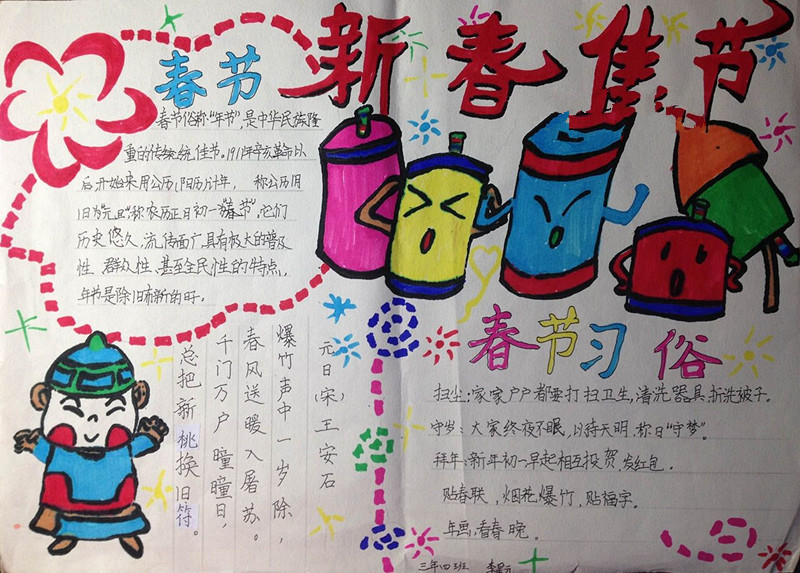 新春佳节
春节
春节俗称“年节”,是中华民族隆
重的传统佳节。1911年辛亥革命以
后开始采用公历(阳历)计年, 称公历1月
1日为“元旦”称农历正月初一“春节”,它们
历史悠久,流传面广具有极大的普及
性、群众性、甚至全民性的特点,
年节是除旧布新的日子。
元日(宋)王安石
爆竹声中一岁除,
春风送暖入屠苏。
千门万户曈曈日,
总把新桃换旧符。
春节习俗
扫尘:家家户户都要打扫卫生,清洗器具,拆洗被子。
守岁:大家终夜不眠,以待天明,称曰“守梦”。
拜年:新年初一早起相互投贺,发红包。
贴春联,烟花爆竹,贴福字。
年画,看春晚。
三年四班